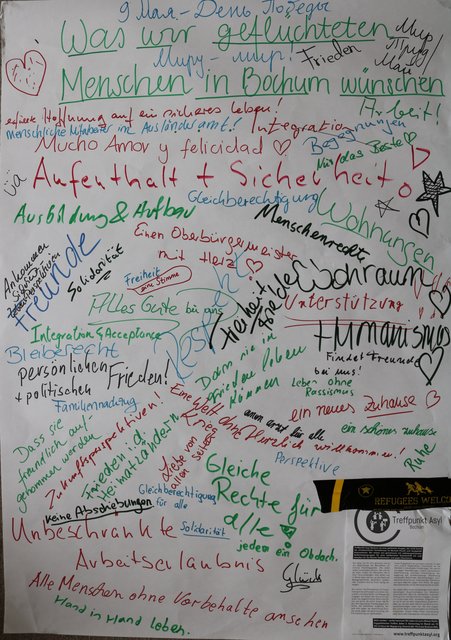 9 Мая - День Победы
Was wir geflüchteten
Миру - мир!
Frieden
Мир
Май
Menschen in Bochum wünschen
Hoffnung auf ein sicheres Leben!
Arbeit!
menschliche Mitarbeiter im Ausländeramt!
Integration
Begegnungen
Mucho Amor y felicidad
Nur das Beste
Aufenthalt + Sicherheit
Gleichberechtigung
Wohnungen
Ausbildung & Aufbau
Menschenrechte
Einen Oberbürgermeister
mit Herz
Ankommen
Freunde
Solidarität
Freiheit
eine Stimme
Wohnraum
Alles Gute bei uns
Freiheit
Liebe
Unterstützung
Respekt
+ Humanismus
Integration & Acceptance
Bleiberecht
Findet Freunde
bei uns!
Dass sie in
Frieden leben
können
persönlichen
+ politischen
Frieden!
Leben ohne
Rassismus
Familiennachzug
ein neues Zuhause
Eine Welt ohne
Kriege
Zukunftsperspektiven!
Dass sie
freundlich auf-
genommen werden
einen Arzt für alle
ein schönes zuhause
Herzlich willkommen!
Ruhe
Frieden i. d.
Heimatländern
Liebe von
allen Seiten
Perspektive
Gleiche
Rechte für
alle!
Gleichberechtigung
für alle
Keine Abschiebungen
REFUGEES WELCO
Unbeschränkte
Solidarität
jedem ein Obdach.
Arbeitserlaubnis
Glück
Alle Menschen ohne Vorbehalte ansehen
Hand in Hand leben.
Treffpunkt Asyl
Bochum
www.treffpunktasyl.org